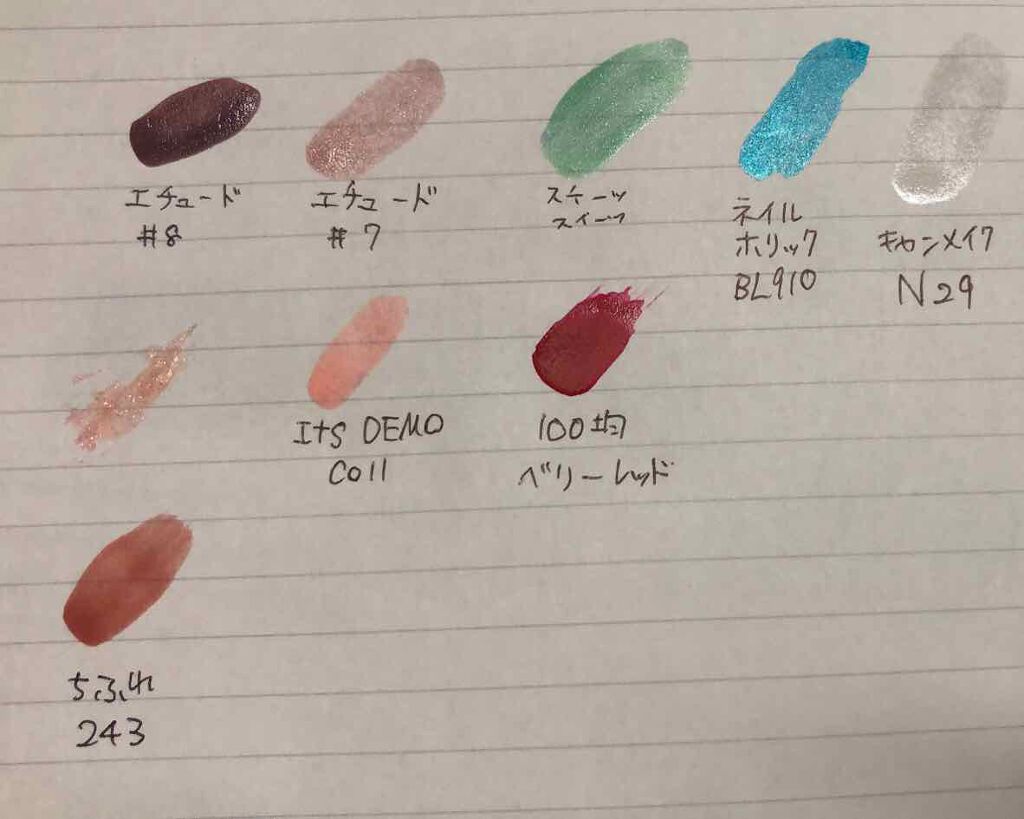 エチュード
#8
エチュード
#7
スイーツ
スイーツ
ネイル
ホリック
BL910
キャンメイク
N29
Its DEMO
CO11
100均
ベリーレッド
ちふれ
243